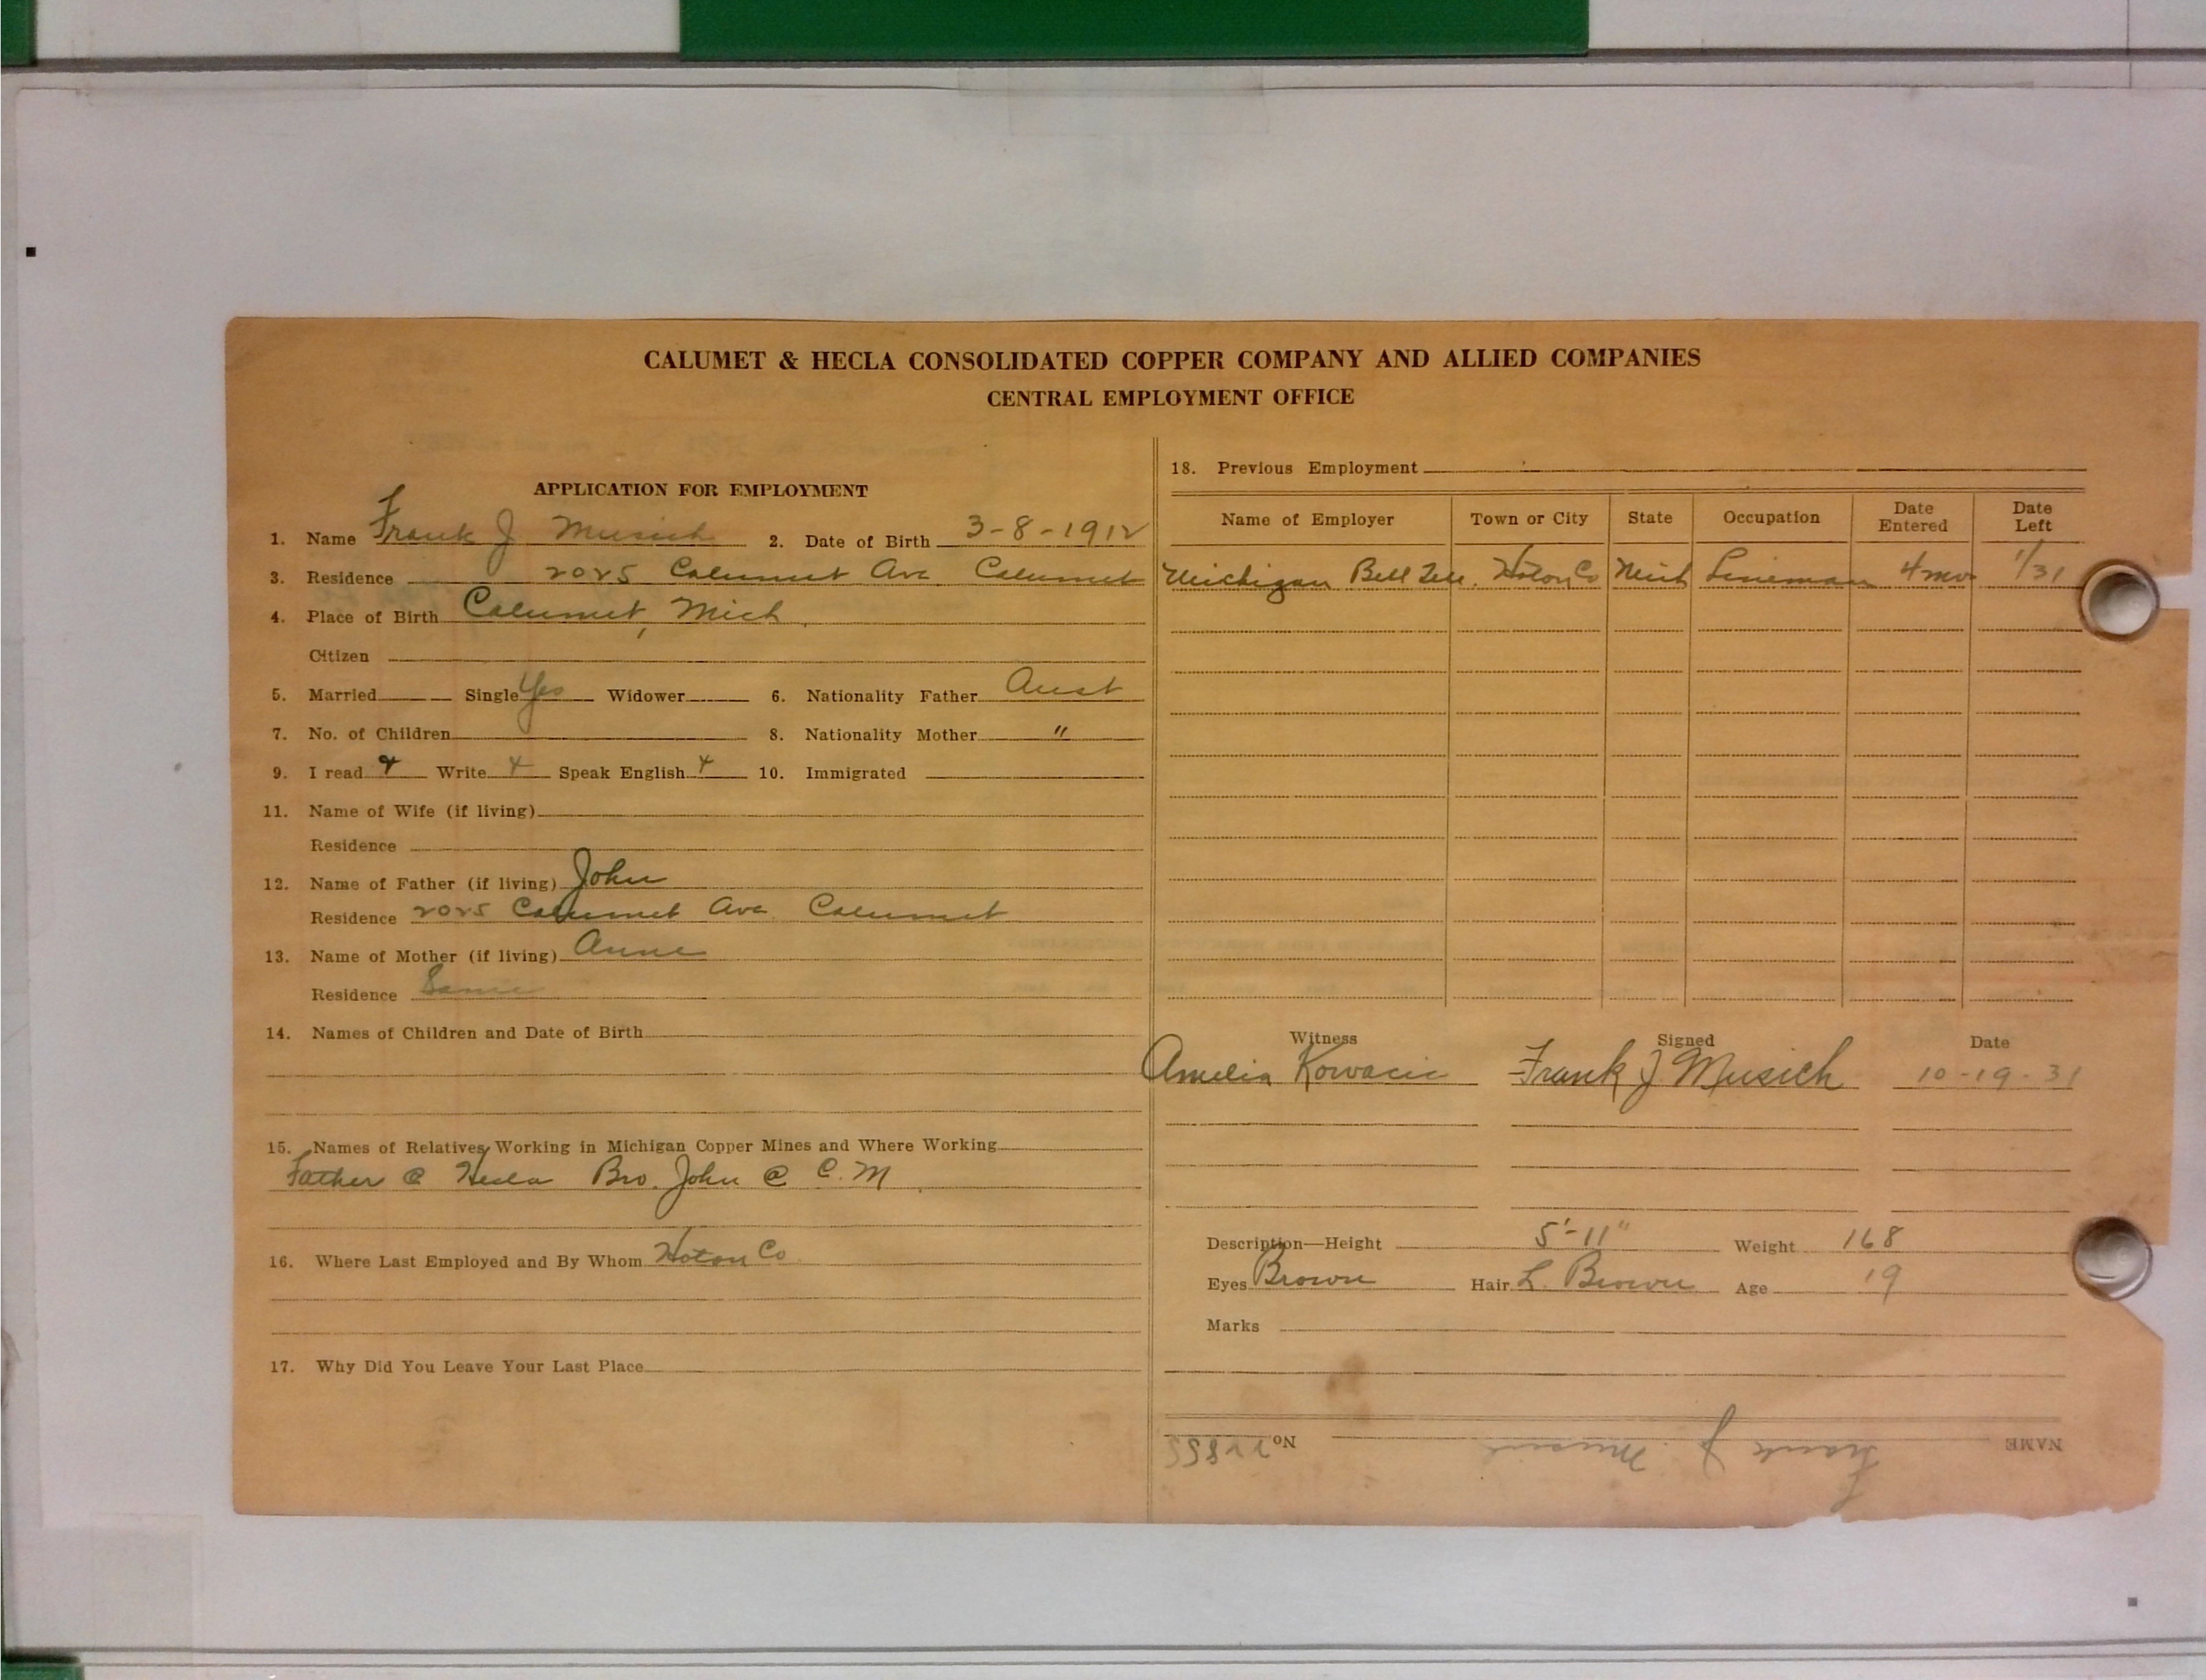 CALUMET & HECLA CONSOLIDATED COPPER COMPANY AND ALLIED COMPANIES
CENTRAL EMPLOYMENT OFFICE
APPLICATION FOR EMPLOYMENT
1. Name Frank J Musich 2. Date of Birth 3-8-1912
3. Residence 2025 Calumet Ave Calumet
4. Place of Birth Calumet, Mich.
Citizen
5. Married Single Yes Widower 6. Nationality Father Aust
7. No. of Children 8. Nationality Mother "
9. I read Write Speak English 10. Immigrated
11. Name of Wife (if living)
Residence
12. Name of Father (if living) John
Residence 2025 Calumet Ave Calumet
13. Name of Mother (if living) Anne
Residence Same
14. Names of Children and Date of Birth
15. Names of Relatives Working in Michigan Copper Mines and Where Working
Father @ Hecla Bro. John @ C.M.
16. Where Last Employed and By Whom Hoton Co.
17. Why Did You Leave Your Last Place
18. Previous Employment
Name of Employer Town or City State Occupation Date Entered Date Left
Michigan Bell Tele. Hoton Co Mich Lineman 4 mos 1/31
Witness Signed Date
Amelia Kovacic Frank J Musich 10-19-31
Description—Height 5'-11" Weight 168
Eyes Brown Hair L. Brown Age 19
Marks
NAME Frank J. Musich No. 22855